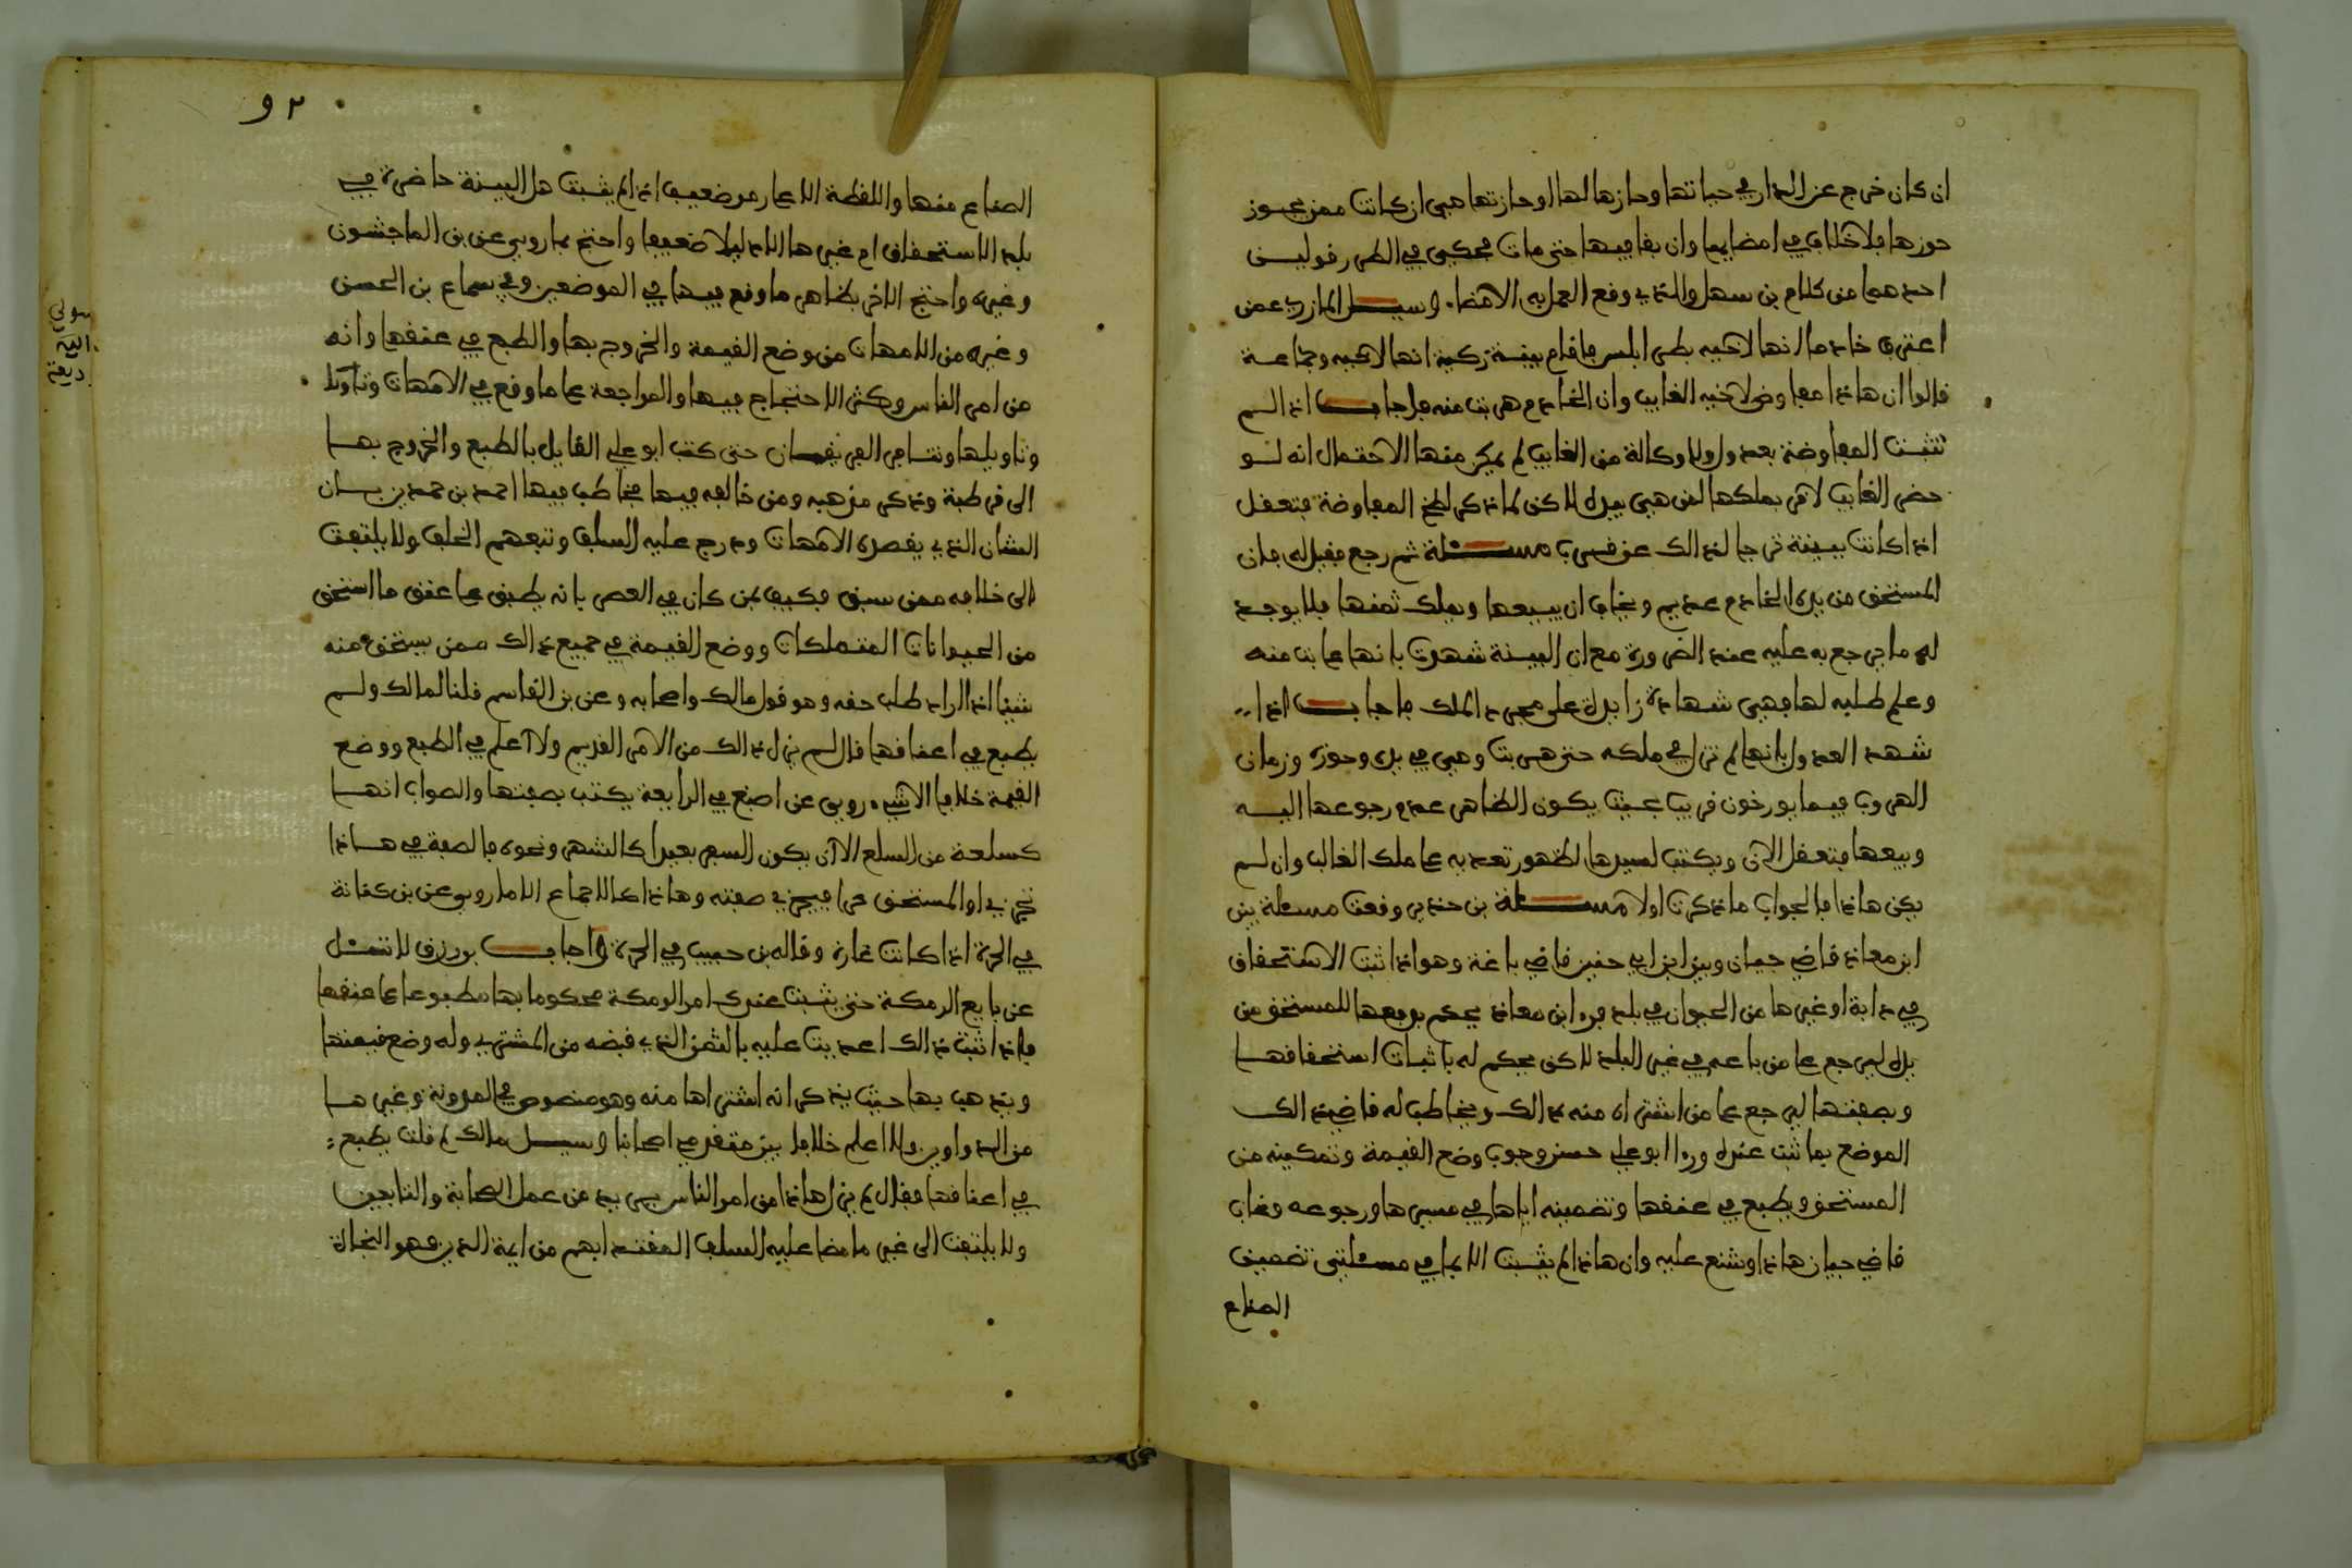 ان كان خرج عن الدار في حياتها وحازها لها او حازتها هي ان كانت ممن يحوز
حوزها فلا خلاف في امضايها وان بقا فيها حتى مات فحكي في الطرر قولين
احدهما من كلام بن سهل والذي وقع العمل به الامضا. وسيل المازري عمن
اعترف خادما انها لاخيه بطرابلس فاقام بينة زكية انها لاخيه وجماعة
قالوا ان هاذا مفاوض لاخيه الغايب وان الخادم هربت منه فاجاب اذا لم
تثبت المفاوضة بعدول ولا وكالة من الغايب لم يمكن منها الاحتمال انه لو
حضر الغايب لاقر بملكها لمن هي بيده لاكن لما ذكر لطخ المفاوضة فتعقل
اذا كانت بينة ترجا لذالك عن قرب مسئلة ثم رجع فقيل له فان
المستحق من يده الخادم عديم ويخاف ان يبيعها ويهلك ثمنها فلا يوجد
له ما يرجع به عليه عند الضرورة مع ان البينة شهدت بانها غابت منه
وعلم طلبه لها فهي شهادة زايدة على مجرد الملك فاجاب اذا
شهد العدول بانها لم تزل في ملكه حتى هربت وهي في يده وحوزه وزمان
الهروب فيما يورخون قريب بحيث يكون الظاهر عدم رجوعها اليه
وبيعها فتعقل الان ويكتب لسيدها لظهور تعديه على ملك الغالب وان لم
يكن هاذا فالجواب ما ذكرت اولا مسئلة بن حدير وقعت مسئلة بين
ابن معاذ قاضي جيان وبين ابن ابي حفين قاضي باغة وهو اذا ثبت الاستحقاق
في دابة او غيرها من الحيوان في بلد فرءا ابن معاذ يحكم بوقعها للمستحق من
يده ليرجع على من باعه في غير البلد لاكن يحكم له باثبات استحقاقها
وبصفتها ليرجع على من اشتراه منه بذالك ويخاطب له قاضي ذالك
الموضع بما ثبت عنده ورءا ابو علي حسن وجوب وضع القيمة وتمكينه من
المستحق ويطبع في عنقها وتضمينه اياها في مسيرها ورجوعه وعاب
قاضي جيان هاذا وشنع عليه وان هاذا لم يثبت الا بما في مسئلتي تضمين
الصناع
٩٢
الصناع منها واللقطة الا على موضعين اذا لم يثبت هل البينة حاضرة في
بلد الاستحقاق ام غيرها الا دليلا ضعيفا واحتج بما روي عن بن الماجشون
وغيره واحتج الاخر بظاهر ما وقع فيها في الموضعين وفي سماع بن الحسن
وغيره من الامهات من وضع القيمة والخروج بها والطبع في عنقها وانه
من امر الناس وكثر الاحتجاج فيها والمراجعة على ما وقع في الامهات وتاولا
وتاويلها وتناجى الفريقان حتى كتب ابو علي القايل بالطبع والخروج بها
الى قرطبة وذكر مذهبه ومن خالفه فيها فخاطب فيها احمد بن حمدين بان
الشان الذي يقصده الامهات ودرج عليه السلف وتبعهم الخلف ولا يلتفت
الى خلافه ممن سبق فكيف بمن كان في العصر بانه يطبق على عنق ما استحق
من الحيوانات المتملكات ووضع القيمة في جميع ذالك ممن يستحق منه
شيئا اذا اراد طلب حقه وهو قول مالك واصحابه وعن بن القاسم قلنا لمالك ولم
يطبع في اعناقها قال لم يزل ذالك من الامر القديم ولا اعلم في الطبع ووضع
القيمة خلافا الا شيء روي عن اصبغ في الرابعة يكتب بصفتها والصواب انها
كسلعة من السلع الا ان يكون السفر بعيدا كالشهر ونحوه فالصفة في هاذا
تجزي او المستحق حرا فيجزي صفته وهاذا كالاجماع الا ما روي عن بن كنانة
في الحرة اذا كانت غارة وقاله بن حبيب في الحرة واجاب بو رزق لا تسئل
عن بايع الرمكة حتى يثبت عندك امر الرمكة محكوما بها مطبوعا على عنقها
فاذا ثبت ذالك اعديت عليه بالثمن الذي قبضه من المشتري وله وضع قيمتها
ويذهب بها حيث يذكر انه اشتراها منه وهو منصوص في المدونة وغيرها
من الدواوين ولا اعلم خلافا بين متقدمي اصحابنا وسيل مالك لم قلت يطبع
في اعناقها فقال لم يزل هاذا من امر الناس يريد من عمل الصحابة والتابعين
ولا يلتفت الى غير ما مضا عليه السلف المقتدا بهم من ايمة الدين فهو النجاة